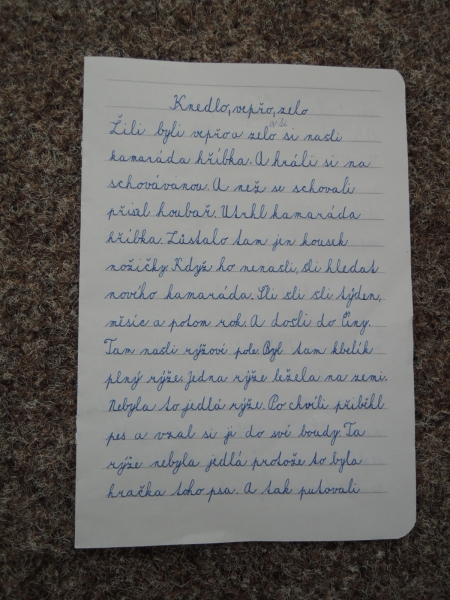 Knedlo, vepřo, zelo
Žili byli vepřo a zelo a ti si našli
kamaráda hříbka. A hráli si na
schovávanou. A než se schovali
přišel houbař. Utrhl kamaráda
hříbka. Zůstalo tam jen kousek
nožičky. Když ho nenašli, šli hledat
nového kamaráda. Šli šli šli týden,
měsíc a potom rok. A došli do Číny.
Tam našli rýžové pole. Byl tam kbelík
plný rýže. Jedna rýže ležela na zemi.
Nebyla to jedlá rýže. Po chvíli přiběhl
pes a vzal si ji do své boudy. Ta
rýže nebyla jedlá protože to byla
hračka toho psa. A tak putovali